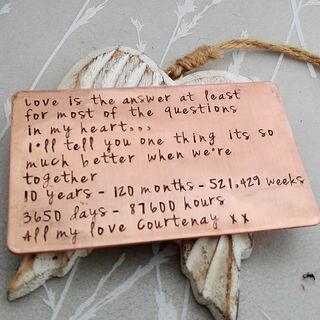 Love is the answer at least
for most of the questions
in my heart...
I'll tell you one thing its so
much better when we're
together
10 years - 120 months - 521.429 weeks
3650 days - 87600 hours
All my love Courtenay xx